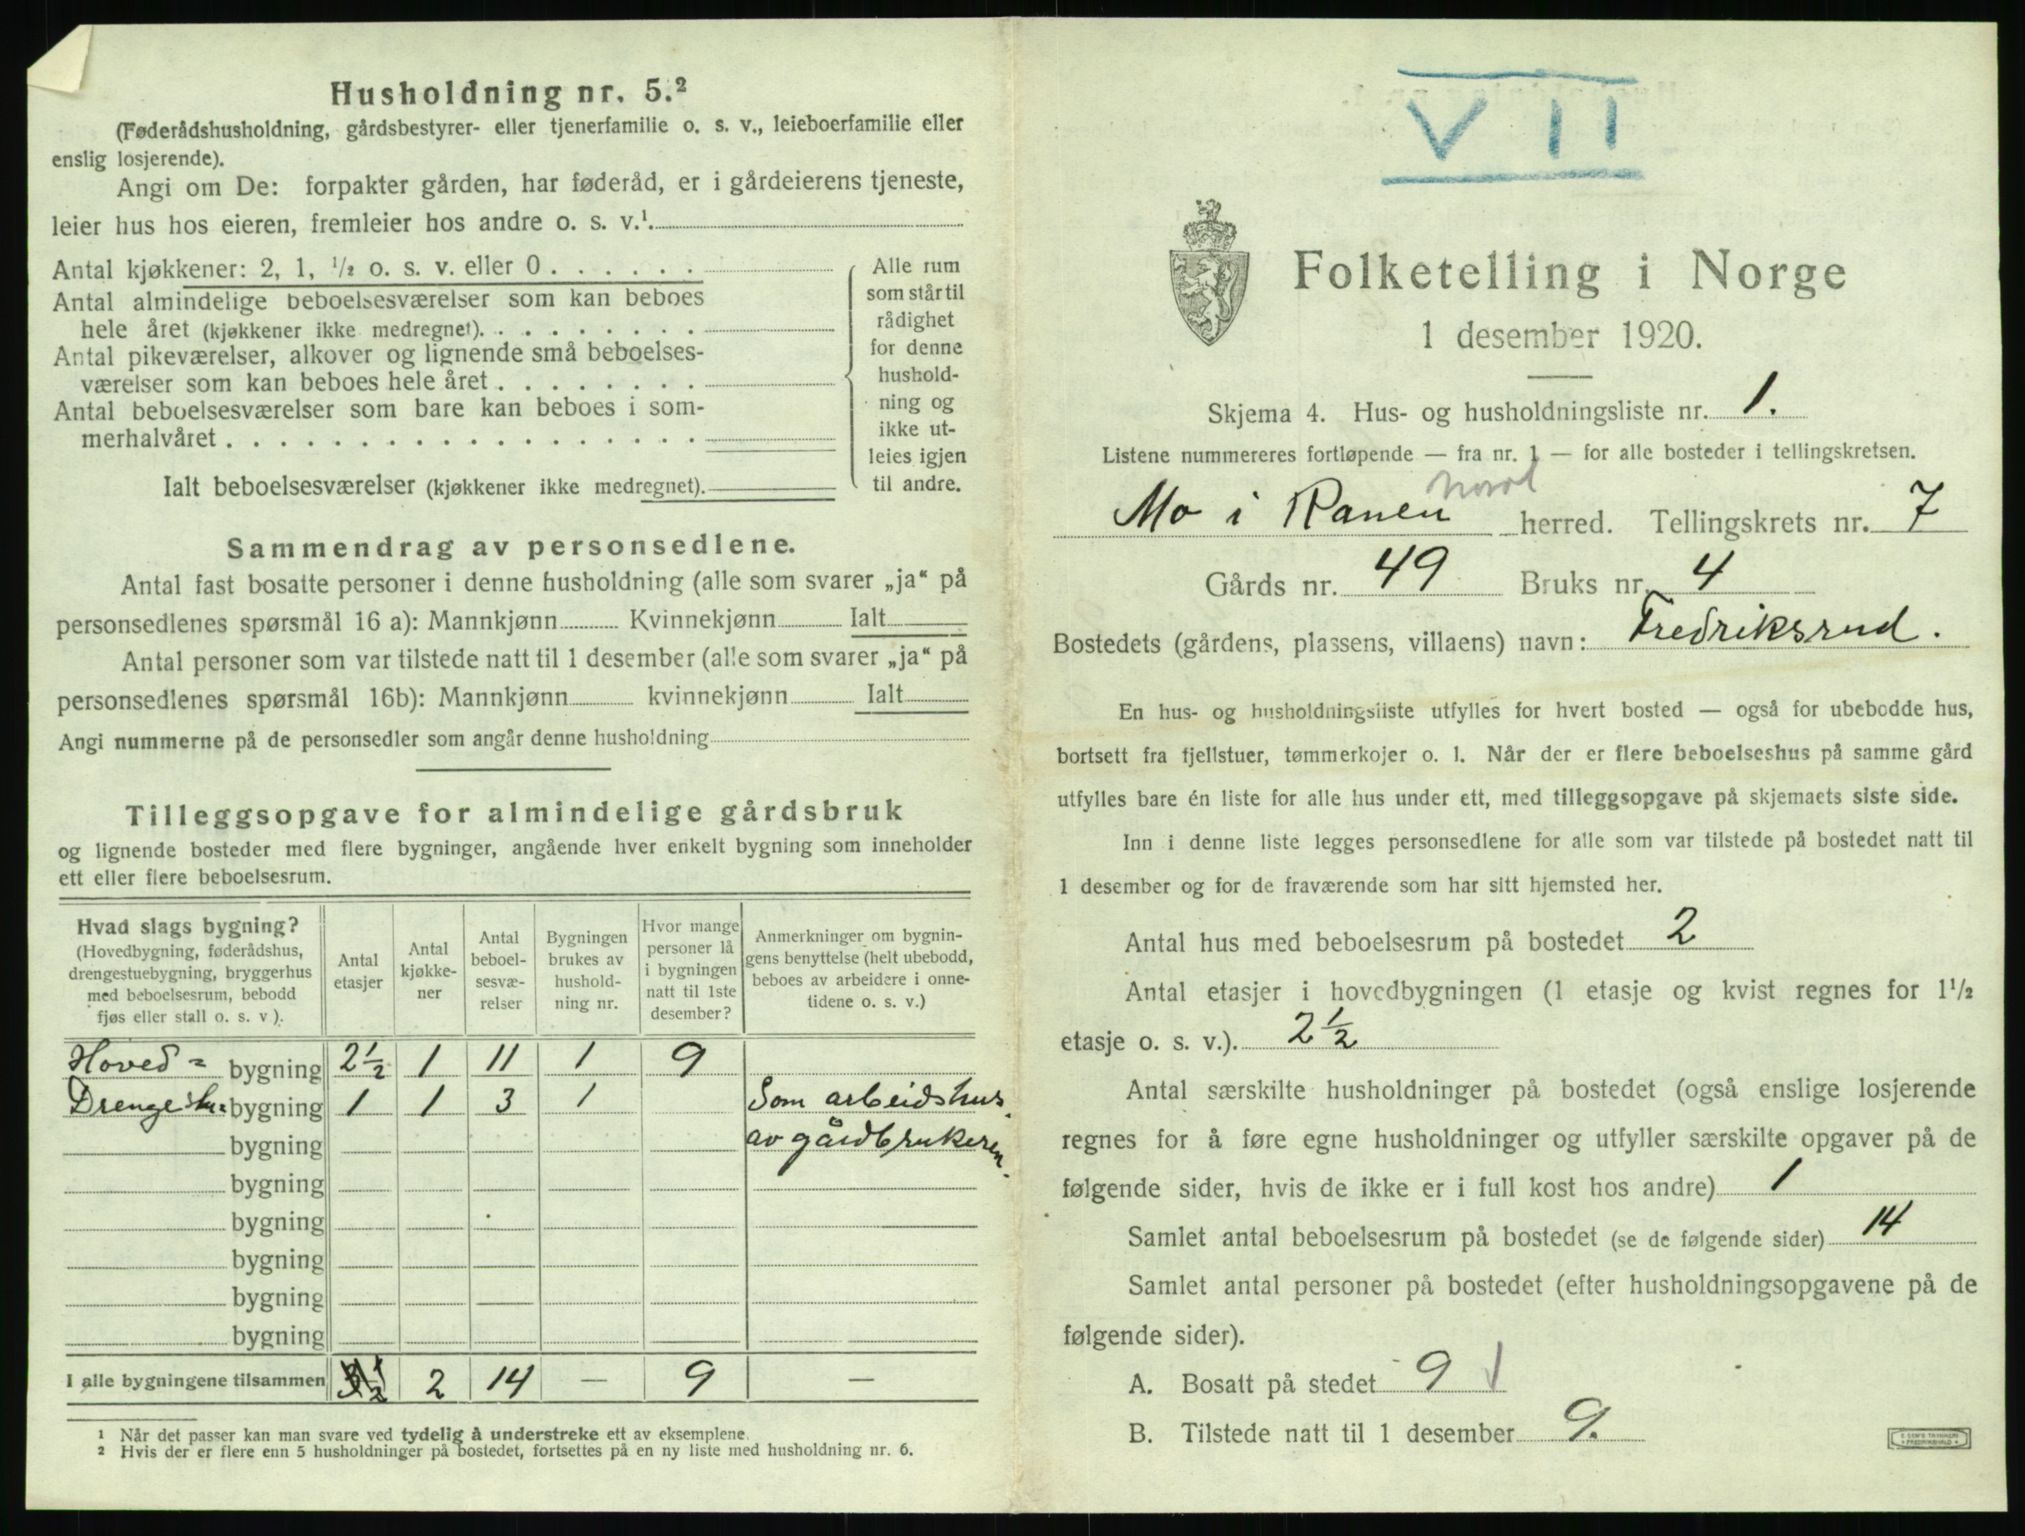 Husholdning nr. 5.²
(Føderådshusholdning, gårdsbestyrer- eller tjenerfamilie o. s. v., leieboerfamilie eller
enslig losjerende).
Angi om De: forpakter gården, har føderåd, er i gårdeierens tjeneste,
leier hus hos eieren, fremleier hos andre o. s. v.¹
Antal kjøkkener: 2, 1, ½ o. s. v. eller 0 . . . . . .
Antal almindelige beboelsesværelser som kan beboes
hele året (kjøkkener ikke medregnet). . . . . . . . .
Antal pikeværelser, alkover og lignende små beboelses-
værelser som kan beboes hele året . . . . . . . .
Antal beboelsesværelser som bare kan beboes i som-
merhalvåret . . . . . . . . . . . . . . . . . .
Ialt beboelsesværelser (kjøkkener ikke medregnet).
Alle rum
som står til
rådighet
for denne
hushold-
ning og
ikke ut-
leies igjen
til andre.
Sammendrag av personsedlene.
Antal fast bosatte personer i denne husholdning (alle som svarer „ja“ på
personsedlenes spørsmål 16 a): Mannkjønn Kvinnekjønn Ialt
Antal personer som var tilstede natt til 1 desember (alle som svarer „ja“ på
personsedlenes spørsmål 16b): Mannkjønn kvinnekjønn Ialt
Angi nummerne på de personsedler som angår denne husholdning
Tilleggsopgave for almindelige gårdsbruk
og lignende bosteder med flere bygninger, angående hver enkelt bygning som inneholder
ett eller flere beboelsesrum.
Hvad slags bygning?
(Hovedbygning, føderådshus,
drengestuebygning, bryggerhus
med beboelsesrum, bebodd
fjøs eller stall o. s. v ).
Antal
etasjer
Antal
kjøkke-
ner
Antal
beboel-
sesvæ-
relser
Bygningen
brukes av
hushold-
ning nr.
Hvor mange
personer lå
i bygningen
natt til 1ste
desember?
Anmerkninger om bygnin-
gens benyttelse (helt ubebodd,
beboes av arbeidere i onne-
tidene o. s. v.)
Hoved= bygning 2½ 1 11 1 9
Drengestu= bygning 1 1 3 1 Som arbeidshus
bygning av gårdbrukeren.
bygning
bygning
bygning
bygning
bygning
I alle bygningene tilsammen 3½ 2 14 — 9 —
¹ Når det passer kan man svare ved tydelig å understreke ett av eksemplene.
² Hvis der er flere enn 5 husholdninger på bostedet, fortsettes på en ny liste med husholdning nr. 6.
VII
Folketelling i Norge
1 desember 1920.
Skjema 4. Hus- og husholdningsliste nr. 1.
Listene nummereres fortløpende — fra nr. 1 — for alle bosteder i tellingskretsen.
Nord
Mo i Ranen herred. Tellingskrets nr. 7
Gårds nr. 49 Bruks nr. 4
Bostedets (gårdens, plassens, villaens) navn: Fredriksrud.
En hus- og husholdningsliste utfylles for hvert bosted — også for ubebodde hus,
bortsett fra fjellstuer, tømmerkojer o. l. Når der er flere beboelseshus på samme gård
utfylles bare én liste for alle hus under ett, med tilleggsopgave på skjemaets siste side.
Inn i denne liste legges personsedlene for alle som var tilstede på bostedet natt til
1 desember og for de fraværende som har sitt hjemsted her.
Antal hus med beboelsesrum på bostedet 2
Antal etasjer i hovedbygningen (1 etasje og kvist regnes for 1½
etasje o. s. v.). 2½
Antal særskilte husholdninger på bostedet (også enslige losjerende
regnes for å føre egne husholdninger og utfyller særskilte opgaver på de
følgende sider, hvis de ikke er i full kost hos andre) 1
Samlet antal beboelsesrum på bostedet (se de følgende sider) 14
Samlet antal personer på bostedet (efter husholdningsopgavene på de
følgende sider).
A. Bosatt på stedet 9
B. Tilstede natt til 1 desember 9.